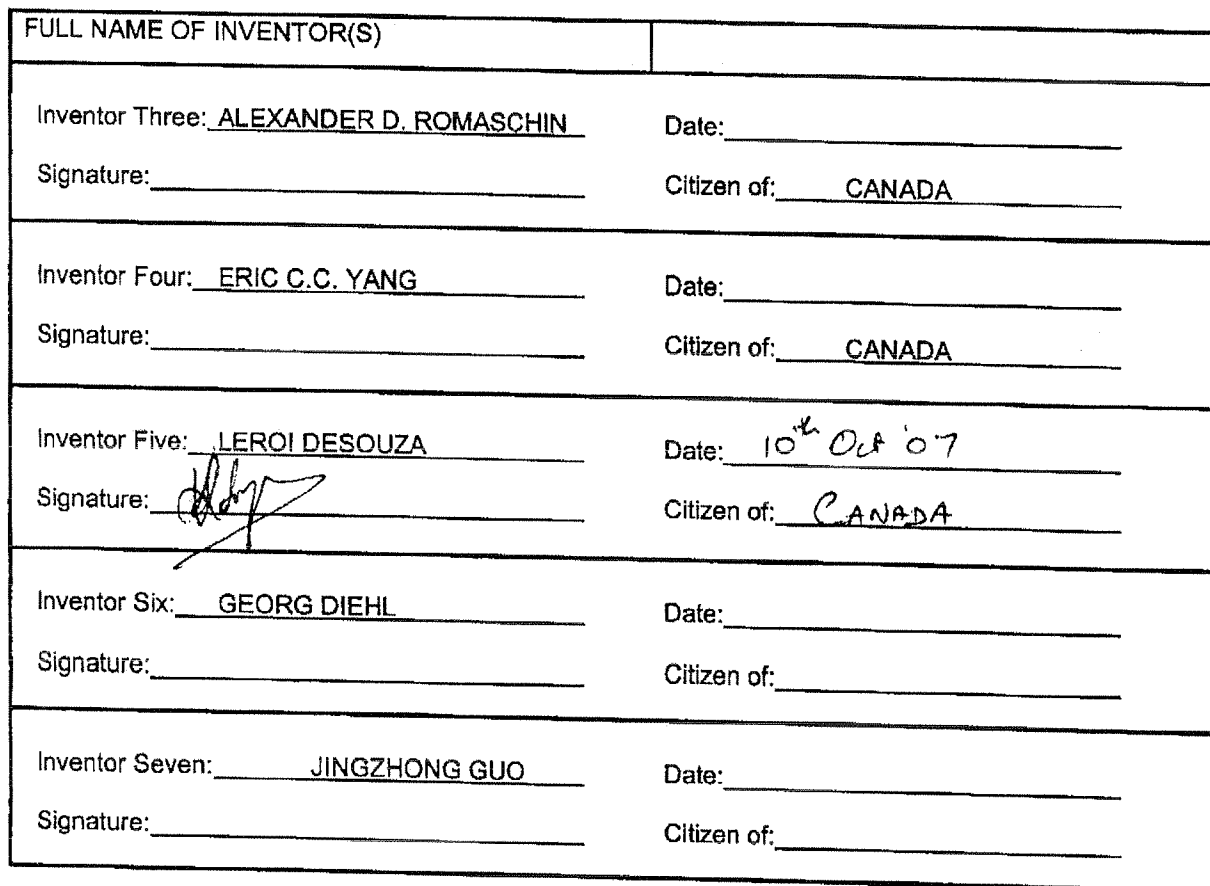 FULL NAME OF INVENTOR(S)
Inventor Three: ALEXANDER D. ROMASCHIN Date:
Signature: Citizen of: CANADA
Inventor Four: ERIC C.C. YANG Date:
Signature: Citizen of: CANADA
Inventor Five: LEROI DESOUZA Date: 10th Oct '07
Signature: Citizen of: CANADA
Inventor Six: GEORG DIEHL Date:
Signature: Citizen of:
Inventor Seven: JINGZHONG GUO Date:
Signature: Citizen of: